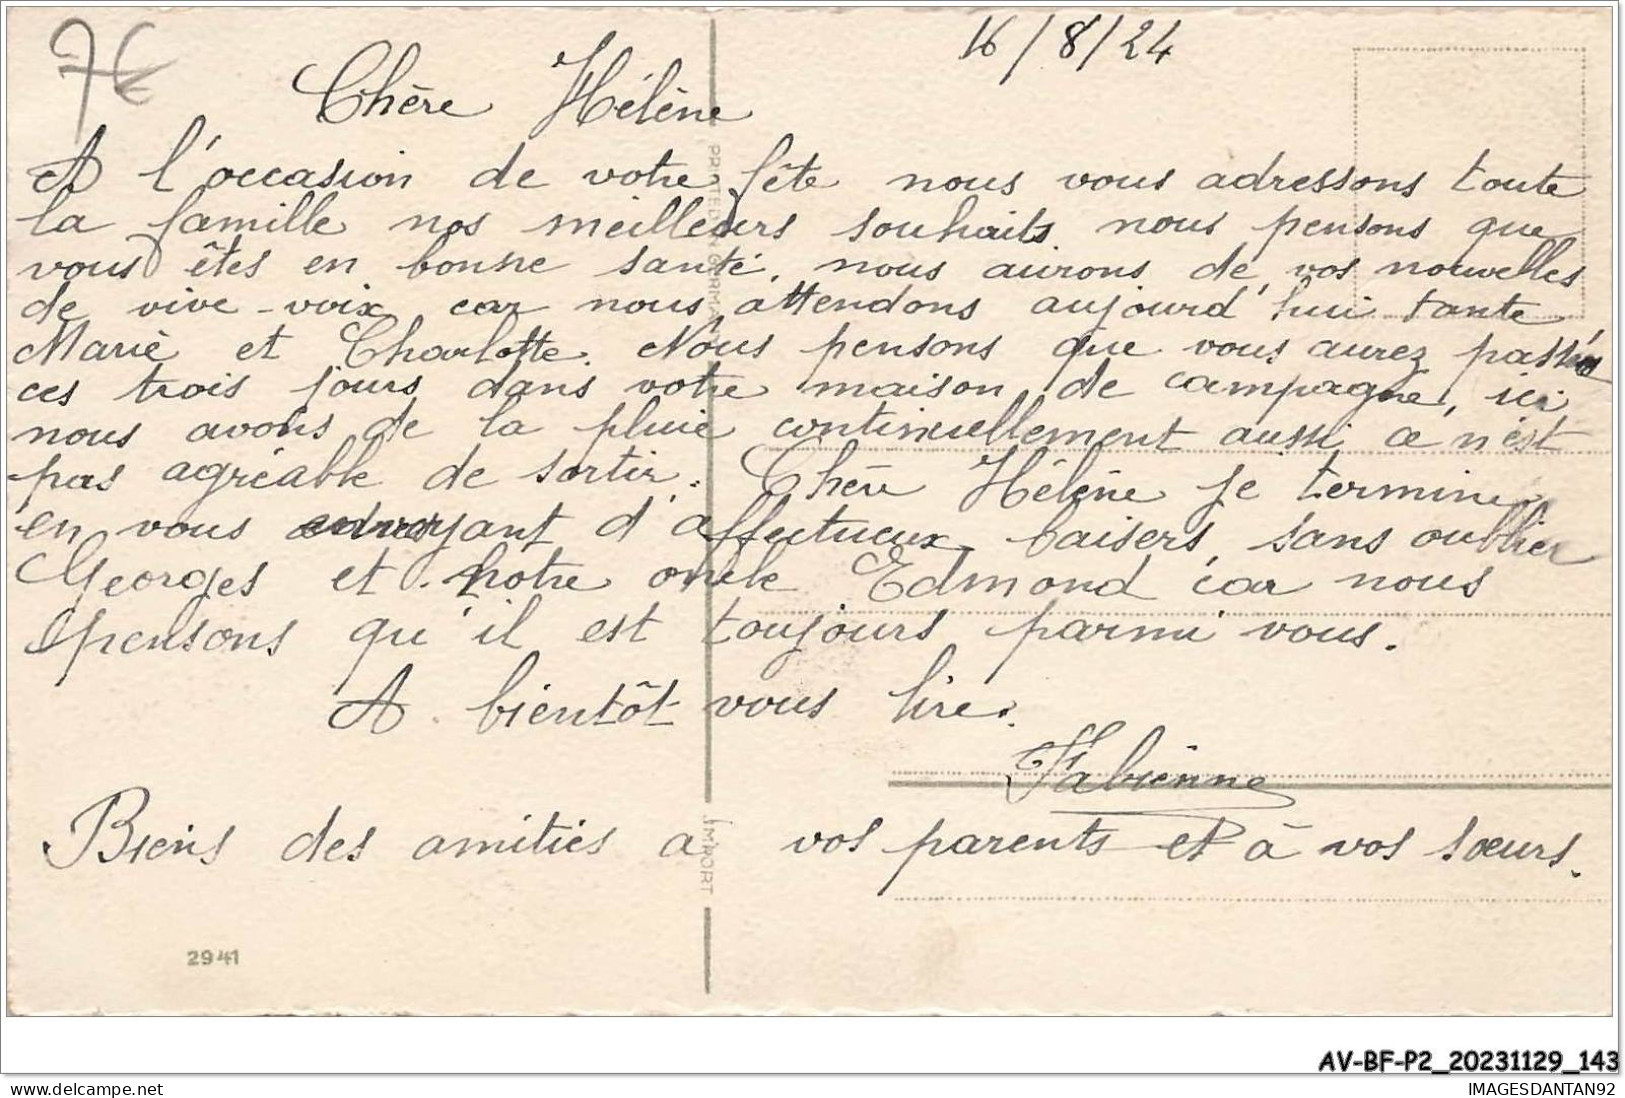 7€
16/8/24
Chère Hélène
A l'occasion de votre fête nous vous adressons toute
la famille nos meilleurs souhaits. nous pensons que
vous êtes en bonne santé, nous aurons de vos nouvelles
de vive-voix car nous attendons aujourd'hui tante
Marie et Charlotte. Nous pensons que vous aurez passés
ces trois jours dans votre maison de campagne, ici
nous avons de la pluie continuellement aussi ce n'est
pas agréable de sortir. Chère Hélène je termine
en vous envoyant d'affectueux baisers, sans oublier
Georges et notre oncle Edmond car nous
pensons qu'il est toujours parmi vous.
A bientôt vous lire.
Fabienne
Biens des amitiés a vos parents et à vos sœurs.
PRINTED IN GERMANY
IMPORT
2941
AV-BF-P2_20231129_143
IMAGESDANTAN92
delcampe.net